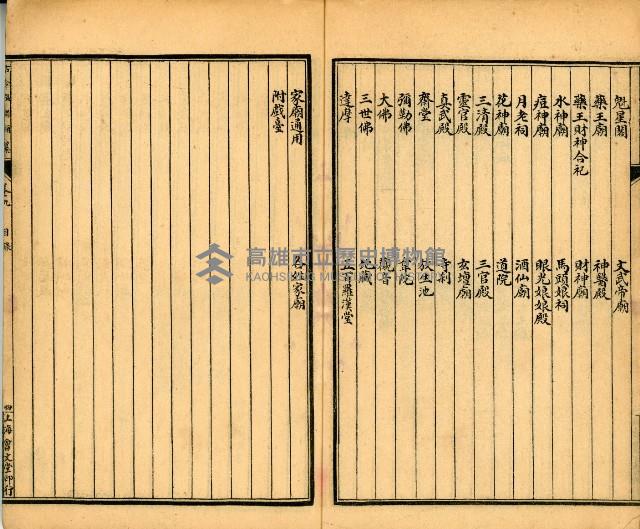 魁星閣 文武帝廟
藥王廟 神醫殿
藥王財神合祀 財神廟
水神廟 馬頭娘祠
痘神廟 眼光娘娘殿
月老祠 酒仙廟
花神廟 道院
三清殿 三官殿
靈官殿 玄壇廟
真武殿
齋堂 放生池
彌勒佛 韋陀
大佛 觀音
三世佛 地藏
達摩 五百羅漢堂
家廟通用 各姓家廟
附戲臺
卷九 目錄
上海會文堂印行
高雄市立歷史博物館
KAOHSIUNG MUSEUM OF HISTORY